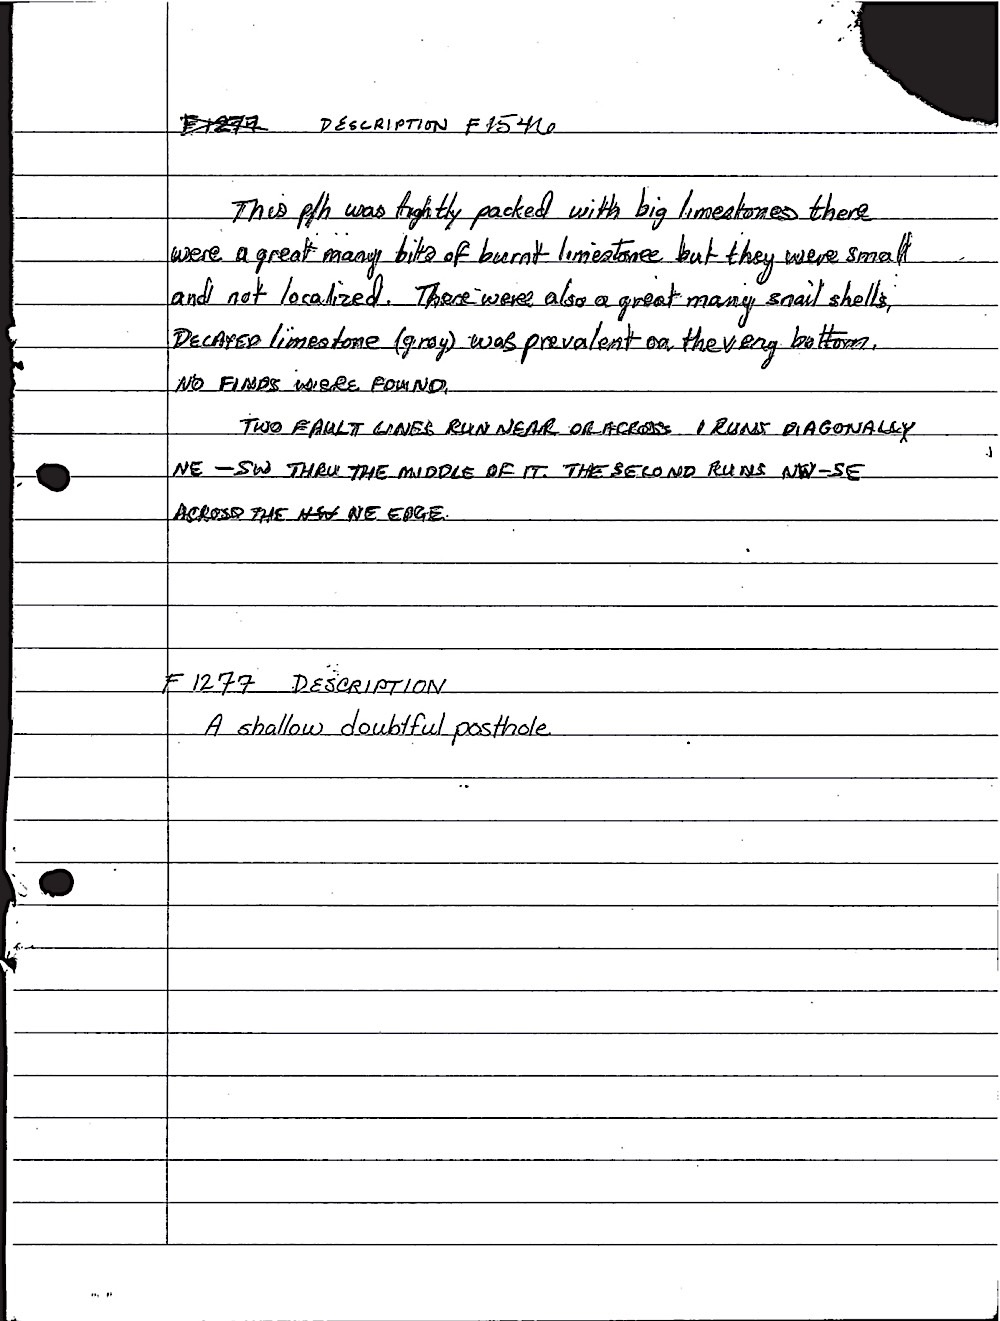 F1277 DESCRIPTION F1546
This p/h was tightly packed with big limestones there
were a great many bits of burnt limestone but they were small
and not localized. There were also a great many snail shells,
DECAYED limestone (gray) was prevalent on the very bottom.
NO FINDS WERE FOUND.
TWO FAULT LINES RUN NEAR OR ACROSS 1 RUNS DIAGONALLY
NE-SW THRU THE MIDDLE OF IT. THE SECOND RUNS NW-SE
ACROSS THE NE EDGE.
F 1277 DESCRIPTION
A shallow doubtful posthole